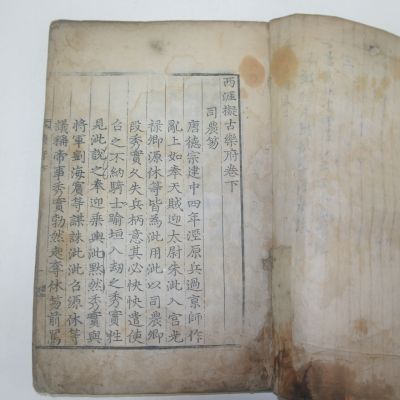 西涯擬古樂府卷下
司農笏
唐德宗建中四年涇原兵過京師作
亂上如奉天賊迎太尉朱泚入宮光
祿卿源休等皆為泚用泚以司農卿
段秀實久失兵柄意其必怏怏遣使
召之不納騎士踰垣入劫之秀實往
見泚說之奉迎乘輿泚默然秀實與
將軍劉海賓等謀誅泚泚召源休等
議稱帝事秀實勃然起奪休笏前罵